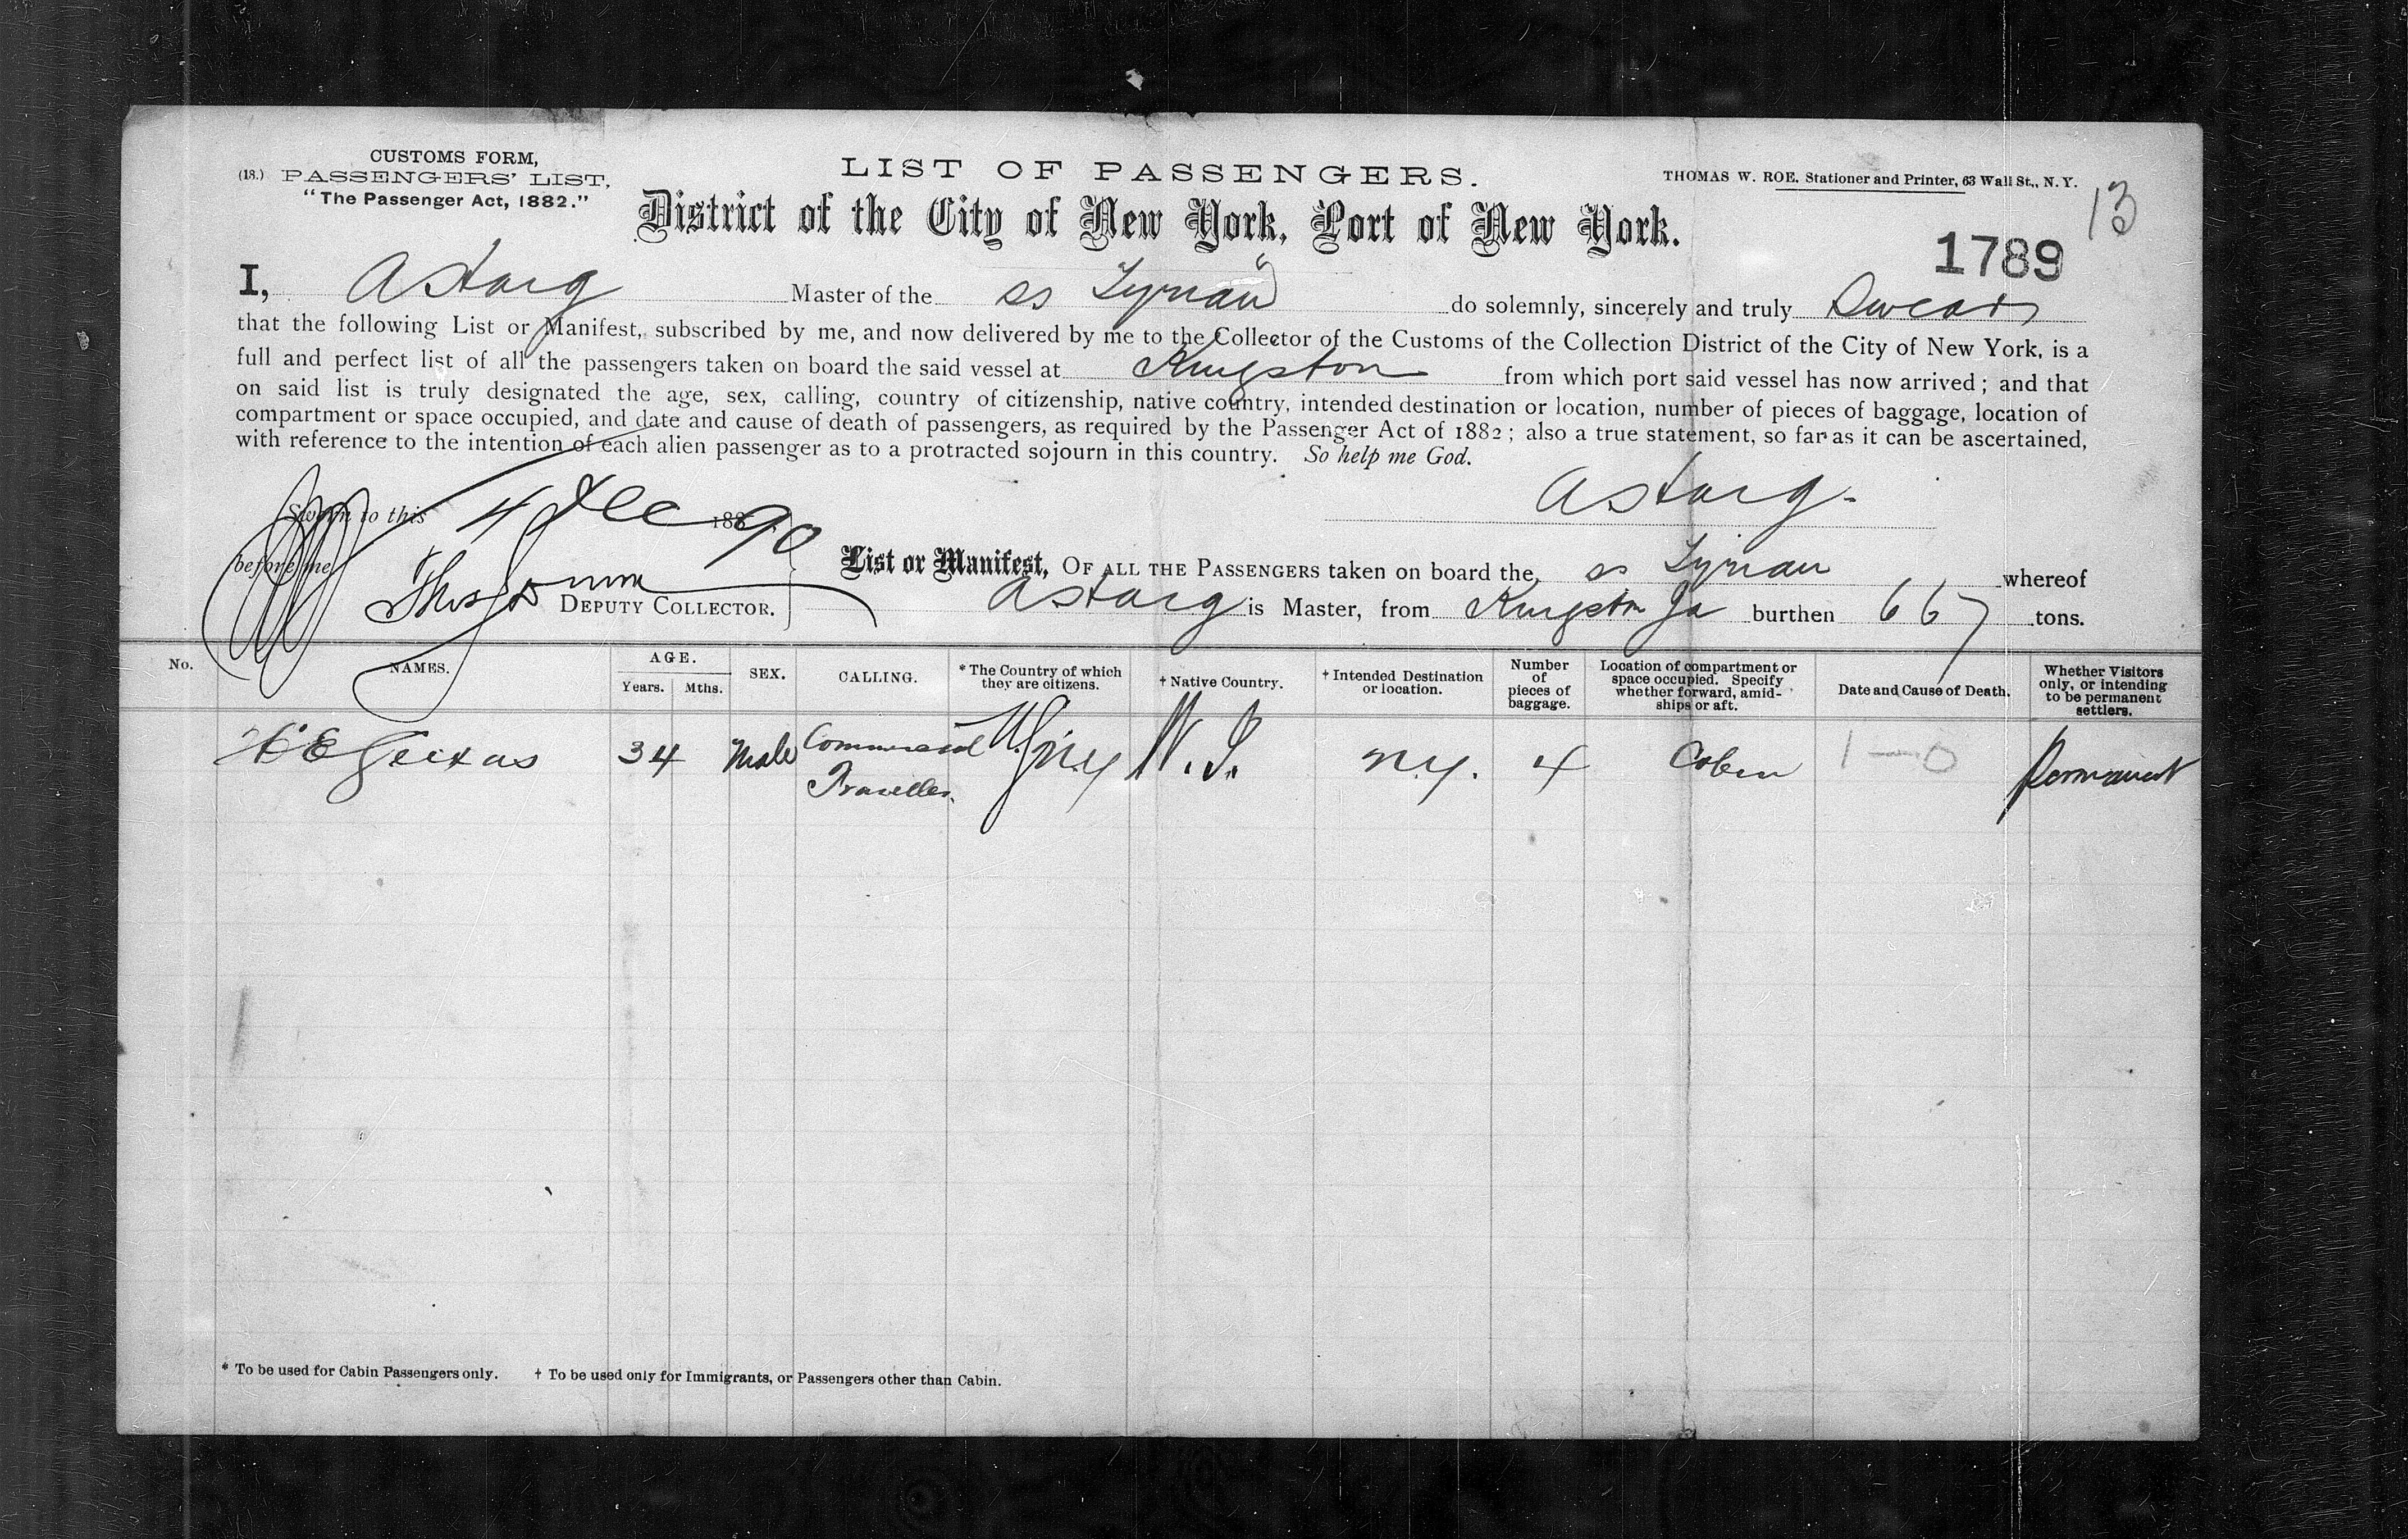 CUSTOMS FORM,
(18.) PASSENGERS' LIST,
"The Passenger Act, 1882."
LIST OF PASSENGERS.
THOMAS W. ROE. Stationer and Printer, 63 Wall St., N.Y.
13
District of the City of New York, Port of New York.
1789
I, A Starg Master of the ss Tynian do solemnly, sincerely and truly Swear
that the following List or Manifest, subscribed by me, and now delivered by me to the Collector of the Customs of the Collection District of the City of New York, is a
full and perfect list of all the passengers taken on board the said vessel at Kingston from which port said vessel has now arrived; and that
on said list is truly designated the age, sex, calling, country of citizenship, native country, intended destination or location, number of pieces of baggage, location of
compartment or space occupied, and date and cause of death of passengers, as required by the Passenger Act of 1882; also a true statement, so far as it can be ascertained,
with reference to the intention of each alien passenger as to a protracted sojourn in this country. So help me God.
A Starg
Sworn to this 4 Dec 1890
before me
Thos Dunn DEPUTY COLLECTOR.
List or Manifest, OF ALL THE PASSENGERS taken on board the ss Tynian whereof
A Starg is Master, from Kingston Ja burthen 667 tons.
No. NAMES. AGE. Years. Mths. SEX. CALLING. * The Country of which they are citizens. † Native Country. † Intended Destination or location. Number of pieces of baggage. Location of compartment or space occupied. Specify whether forward, amidships or aft. Date and Cause of Death. Whether Visitors only, or intending to be permanent settlers.
34 Male Commercial Traveller. N.Y. 4 Cabin 1—0 Permanent
* To be used for Cabin Passengers only. † To be used only for Immigrants, or Passengers other than Cabin.